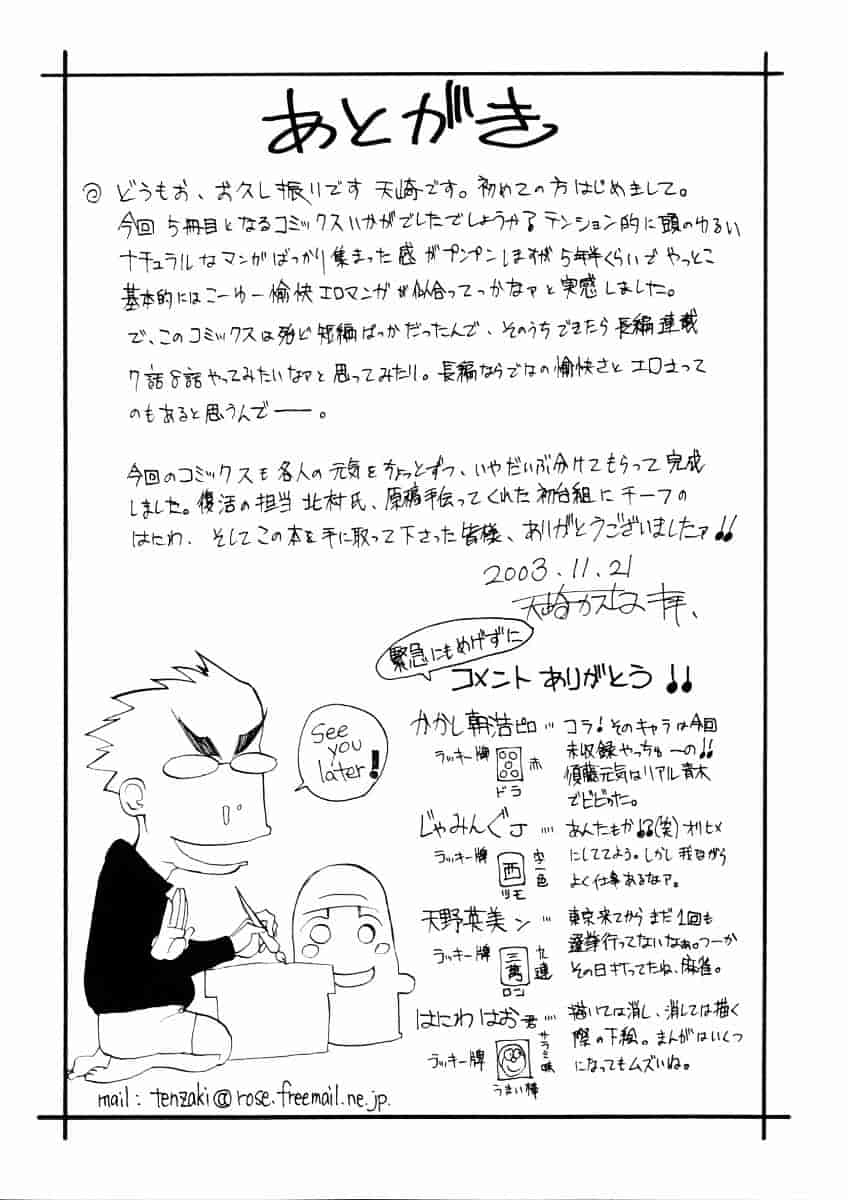 あとがき
◎ どうもお、お久し振りです 天崎です。初めての方はじめまして。
今回 5冊目となるコミックスいかがでしたでしょうか? テンション的に頭のゆるい
ナチュラルなマンガばっかり集まった感がプンプンしますが5年半くらいでやっとこ
基本的にはこーゆー愉快エロマンガが似合ってっかなァと実感しました。
で、このコミックスは殆ど短編ばっかだったんで、そのうちできたら長編連載
7話8話やってみたいなァと思ってみたり。長編ならではの愉快さとエロさって
のもあると思うんで――。
今回のコミックスも各人の元気をちょっとずつ、いやだいぶ分けてもらって完成
しました。復活の担当 北村氏、原稿手伝ってくれた初台組にチーフの
はにわ、そしてこの本を手に取って下さった皆様、ありがとうございましたァ!!
2003.11.21
緊急にもめげずに
コメントありがとう!!
かかし朝浩ピロ… コラ!そのキャラは今回
未収録やっちゅーの!!
須藤元気はリアル青木
でビビった。
ラッキー牌
赤
ドラ
じゃみんぐJ… あんたもか!?(笑)オリヒメ
にしててよう。しかし我ながら
よく仕事あるなァ。
ラッキー牌
西
字一色
ツモ
天野英美ン… 東京来てからまだ1回も
選挙行ってないなぁ。つーか
その日打ってたね、麻雀。
ラッキー牌
三萬
九連
ロン
はにわはお君… 描いては消し、消しては描く
際の下絵。まんがはいくつ
になってもムズいね。
ラッキー牌
サラミ味
うまい棒
See
you
later!
mail : tenzaki@rose.freemail.ne.jp.